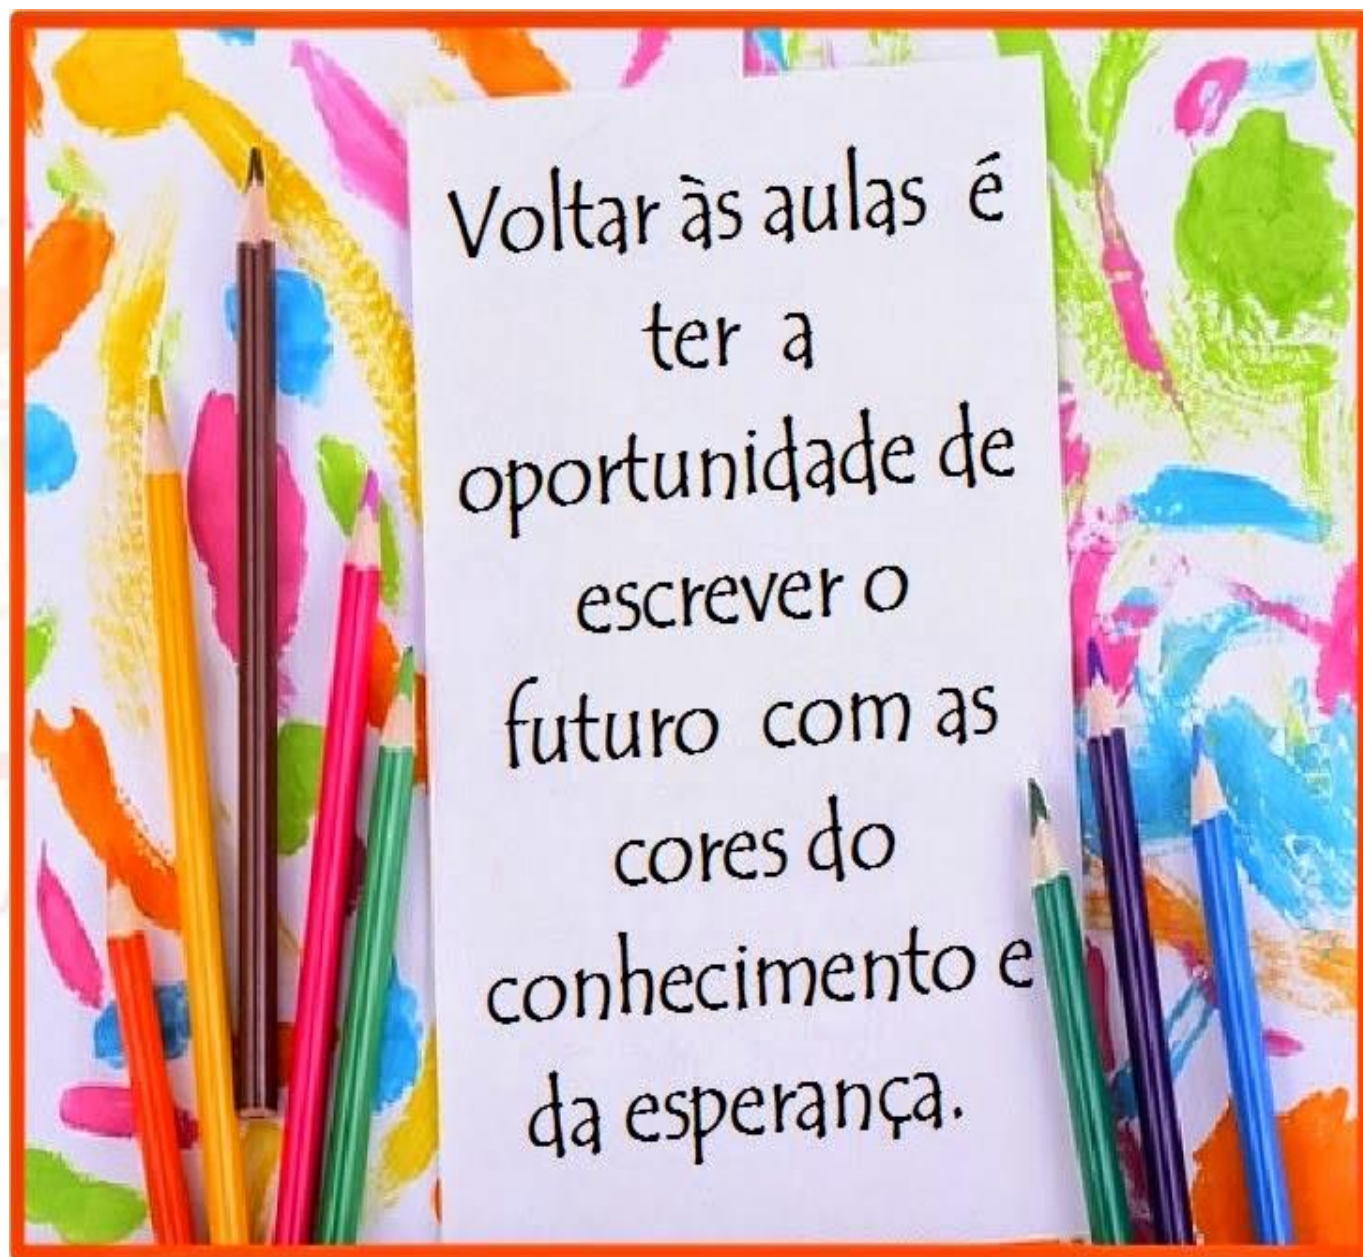 Voltar às aulas é
ter a
oportunidade de
escrever o
futuro com as
cores do
conhecimento e
da esperança.